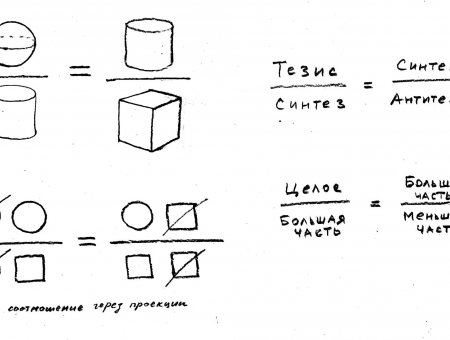 Тезис = Синте
Синтез Антите
Целое = Больш
часть
Большая Меньш
часть част
соотношение через проекции